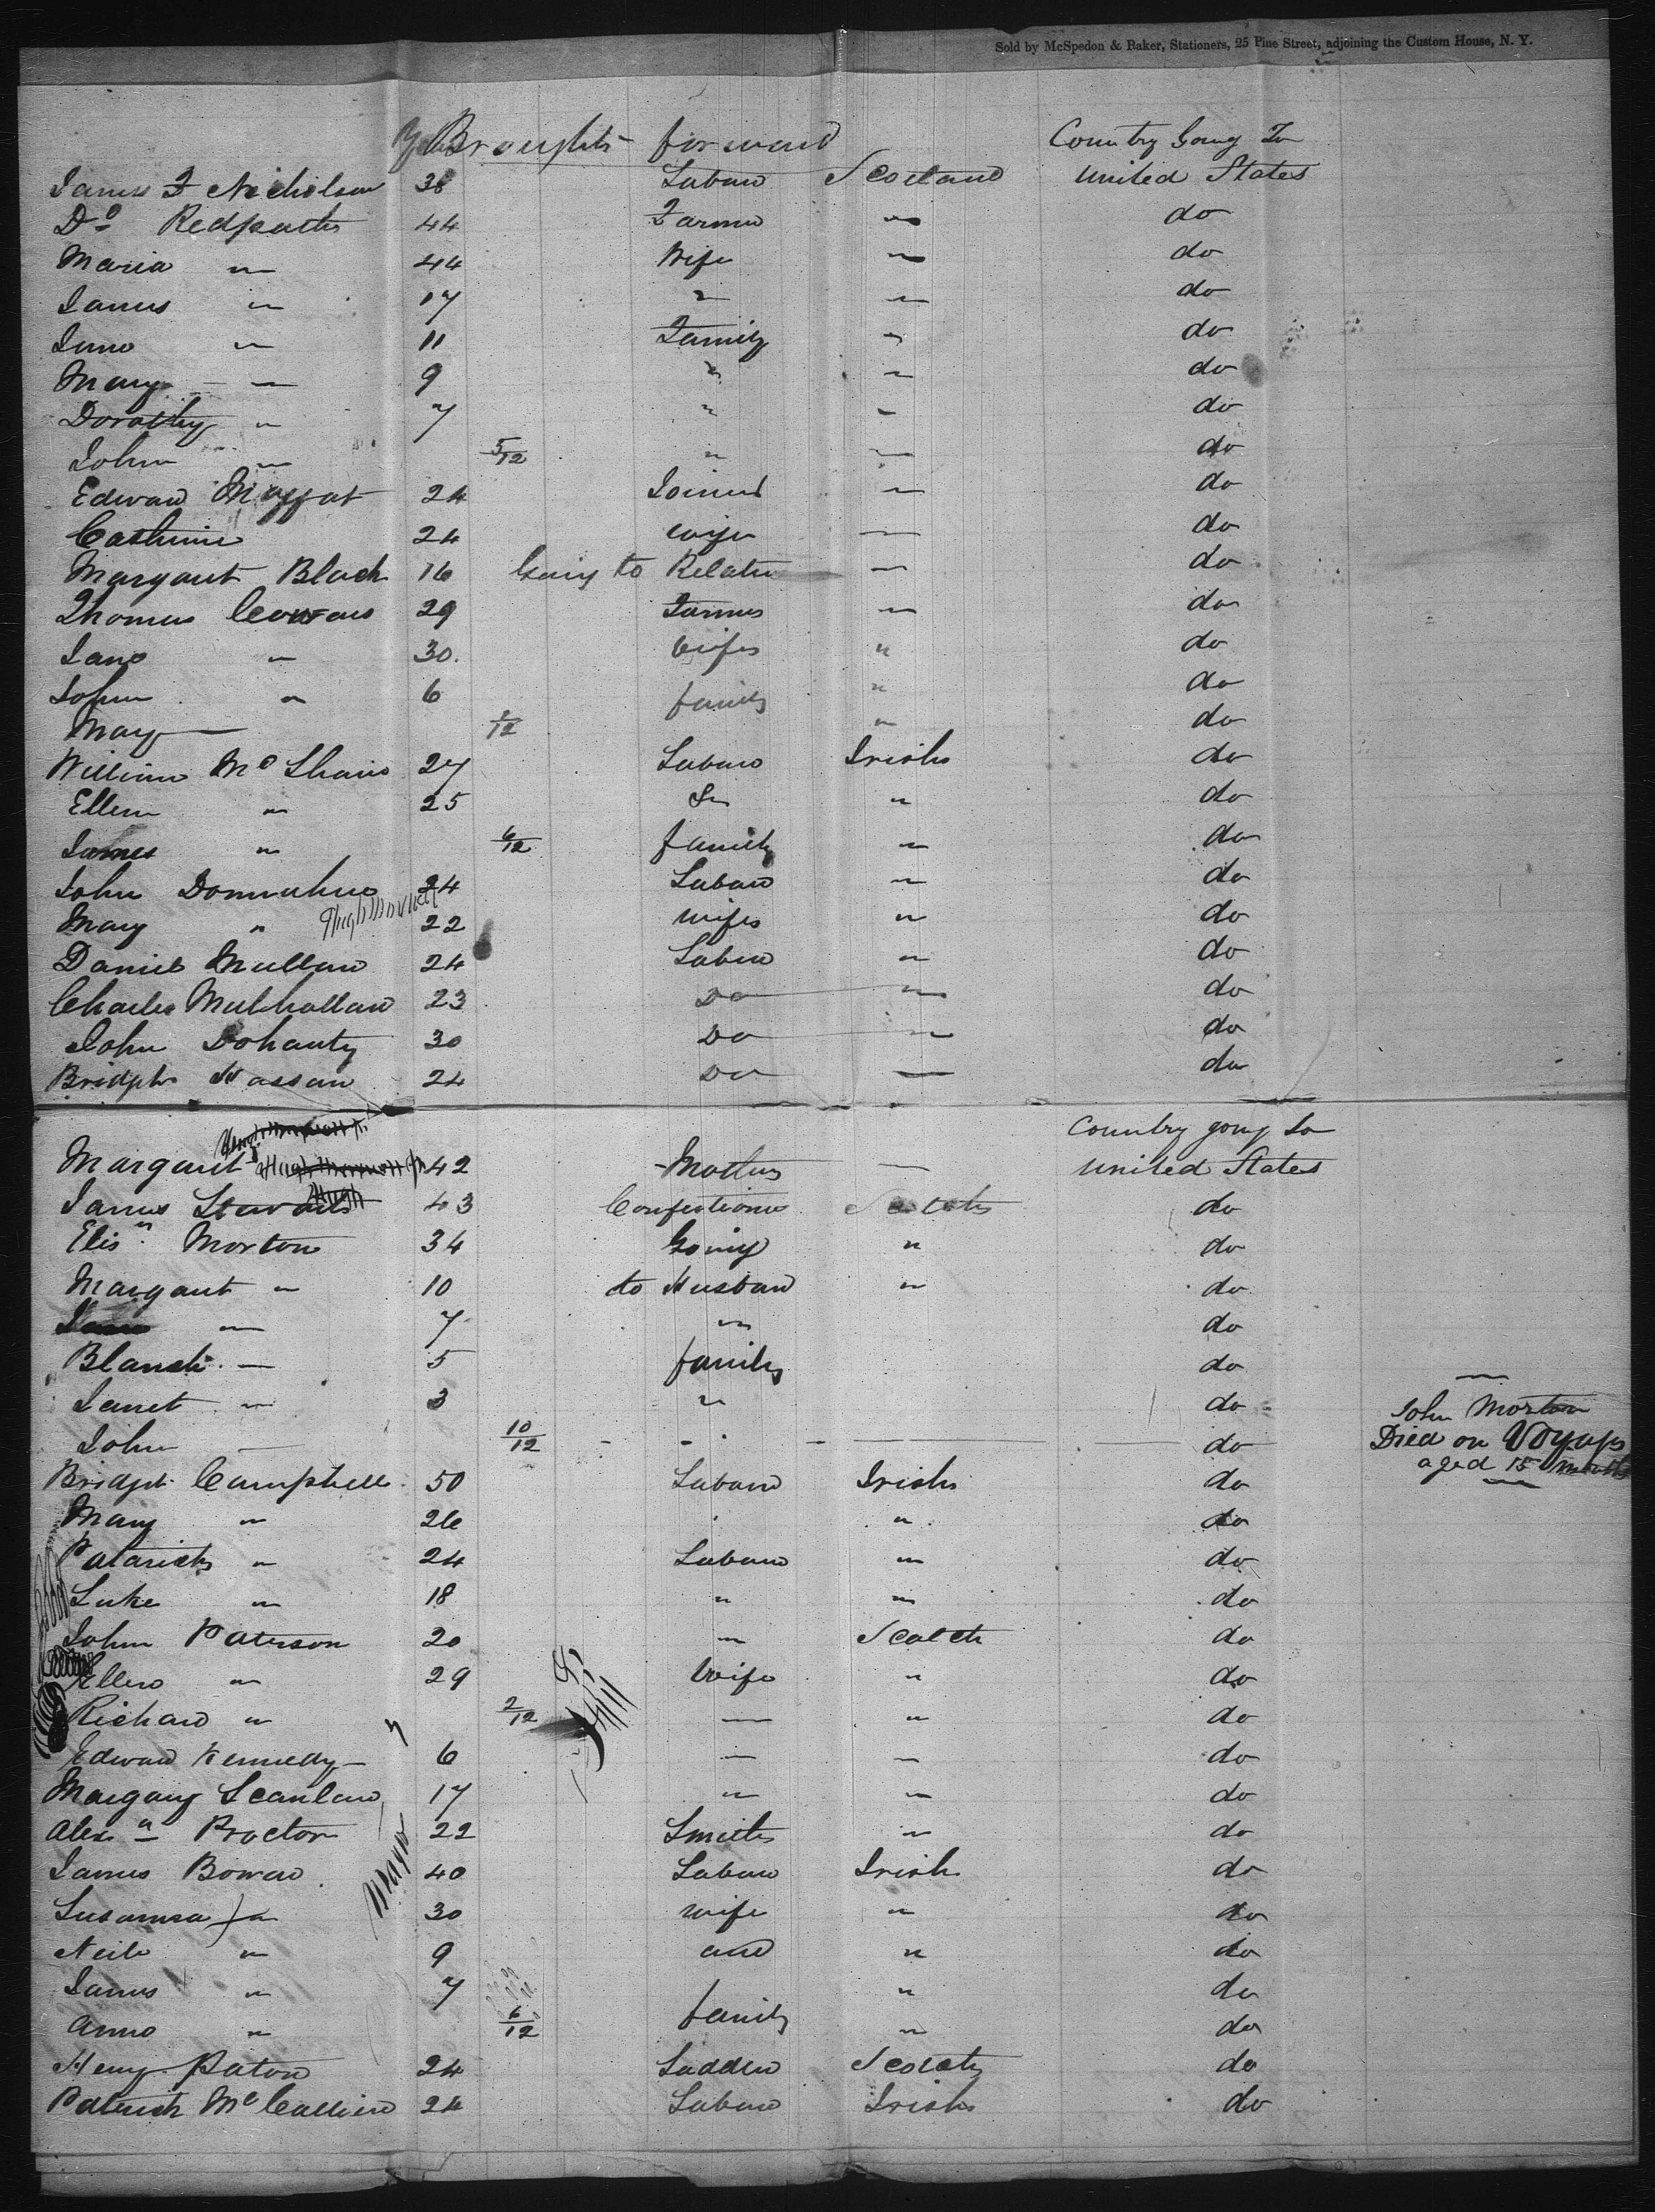 Sold by McSpedon & Baker, Stationers, 25 Pine Street, adjoining the Custom House, N. Y.
Brought forward Country Going To
James F Nicholson 38 Labour Scotland United States
Do Redpath 44 Farmer " do
Maria " 44 Wife " do
James " 17 " " do
Jane " 11 Family " do
Mary " 9 " " do
Dorathy " 7 " " do
John " 5/12 " " do
Edward Moffat 24 Joiner " do
Cathrine 24 wife " do
Margaret Black 16 Going to Relative " do
Thomas 29 Farmer " do
Jane " 30 Wife " do
John " 6 family " do
Mary /12 " do
William Mc Shane 27 Labour Irish do
Ellen " 25 " do
James " 6/12 family " do
John Donnahue 24 Labour " do
Mary " 22 wife " do
Daniel Mullan 24 Labour " do
Charles Mulhollan 23 Do " do
John Dohauty 30 Do " do
Bridget Hassan 24 Do " do
Country going to
Margaret " 42 Mother " United States
James Stewart 43 Confectioner Scotch do
Elis.n Morton 34 Going " do
Margaret " 10 to Husband " do
" 7 " do
Blanch " 5 family do
Janet " 3 " do
John 10/12 do
John Morton
Died on Voyage
aged 15 months
Bridget Campbell 50 Labour Irish do
Mary " 26 " do
Patarick " 24 Labour " do
Luke " 18 " " do
John Paterson 20 " Scotch do
Ellen " 29 Wife " do
Richard " 2/12 " " do
Edward Kennedy 6 " " do
Margary Scanlan 17 " " do
Alexn Procton 22 Smith " do
James Bowan 40 Labour Irish do
Susanna " 30 wife " do
Neil " 9 and " do
James " 7 " do
Anne " 6/12 family " do
Henry Paton 24 Sadler Scotch do
Patrick Mc 24 Labour Irish do